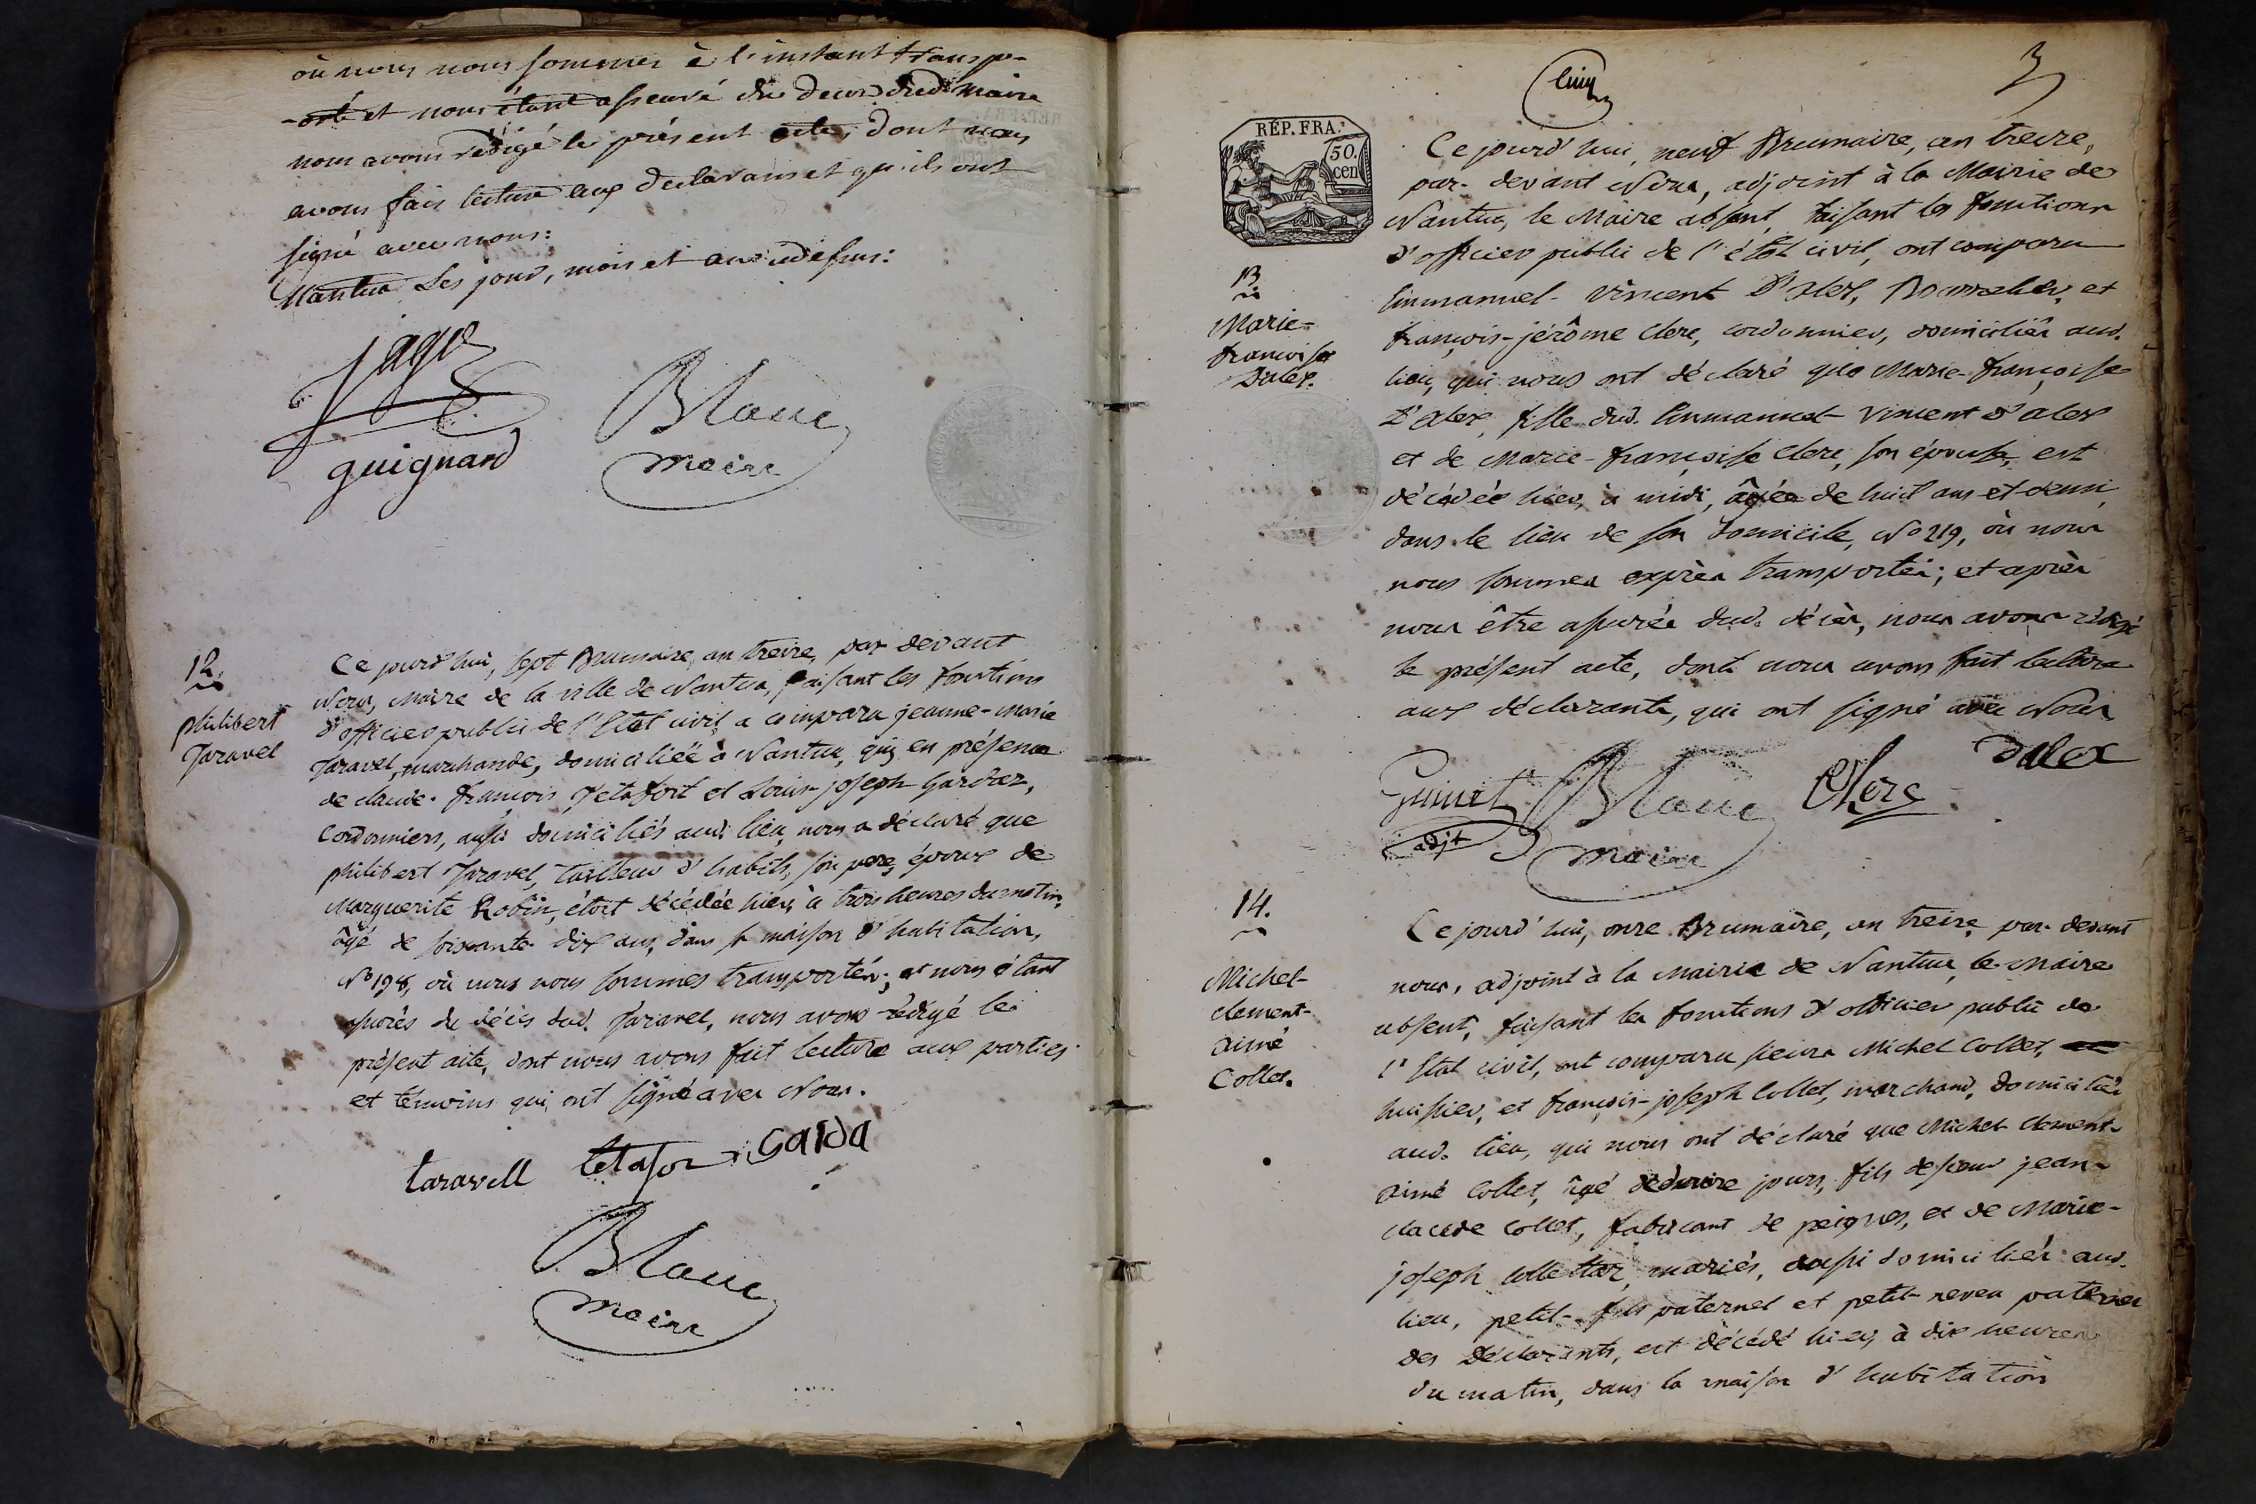 où nous nous sommes à l'instant transpo-
-orté et nous étant asseuré du decès dud. Maire
nous avons rédigé le présent acte, dont nous
avons fais lecture aux declarans et qu'ils ont
signé avec nous:
Nantua Les jour, mois et an susdit:
Jago
guignard
Blanc
maire
12.
philibert
Taravel
Ce jourd'hui, sept Brumaire, an treize, par devant
Nous, Maire de la ville de Nantua, faisant les fonctions
d'officier public de l'Etat civil, a comparu jeanne-Marie
Taravel, marchande, domiciliée à Nantua, qui, en présence
de claude-françois Tetafort et Louis-joseph Gardaz,
Cordonniers, aussi domiciliés aud. lieu, nous a déclaré que
philibert Taravel, tailleur d'habits, son pere, époux de
Marguerite Robin, étoit décédée hier, à trois heures du matin,
âgé de soixante dix ans, dans sa maison d'habitation,
No 198, où nous nous sommes transportés; et nous étant
assurés du décès dud. Taravel, nous avons rédigé le
présent acte, dont nous avons fait lecture aux parties
et témoins qui ont signé avec Nous.
taravell tetafor Garda
Blanc
maire
3
cinq
RÉP. FRA.
50.
cen
13
Marie-
françoise
Dalex.
Ce jourd'hui, neuf Brumaire, an treize,
par-devant Nous, adjoint à la Mairie de
Nantua, le Maire absent, faisant les fonctions
d'officier public de l'état civil, ont comparu
Emmanuel-Vincent D'alex, Bourrelier, et
françois-jérôme Clerc, cordonnier, domiciliés aud.
lieu, qui nous ont déclaré que Marie-françoise
D'alex, fille dud. Emmanuel-Vincent d'alex
et de Marie-françoise Clerc, son épouse, est
décédée hier, à midi, âgée de huit ans et demi,
dans le lieu de son domicile, No 219, où nous
nous sommes exprès transportés; et après
nous être assurés dud. décès, nous avons rédigé
le présent acte, dont nous avons fait lecture
aux déclarants, qui ont signé avec Nous
Guinet
adjt
Blanc
maire
Clerc
Dalex
14.
Michel-
clement-
aimé
Collet.
Ce jourd'hui, onze Brumaire, an treize, par-devant
nous, adjoint à la Mairie de Nantua, le Maire
absent, faisant les fonctions d'officier public de
l'Etat civil, ont comparu sieurs Michel Collet,
huissier, et françois-joseph Collet, marchand, domiciliés
aud. lieu, qui nous ont déclaré que Michel-Clement-
aimé Collet, âgé de douze jours, fils de sieur jean-
claude Collet, fabricant de peignes, et de Marie-
joseph Collettaz, mariés, aussi domiciliés aud.
lieu, petit-fils paternel et petit-neveu paternel
des Déclarants, est décédé hier, à dix heures
du matin, dans la maison d'habitation